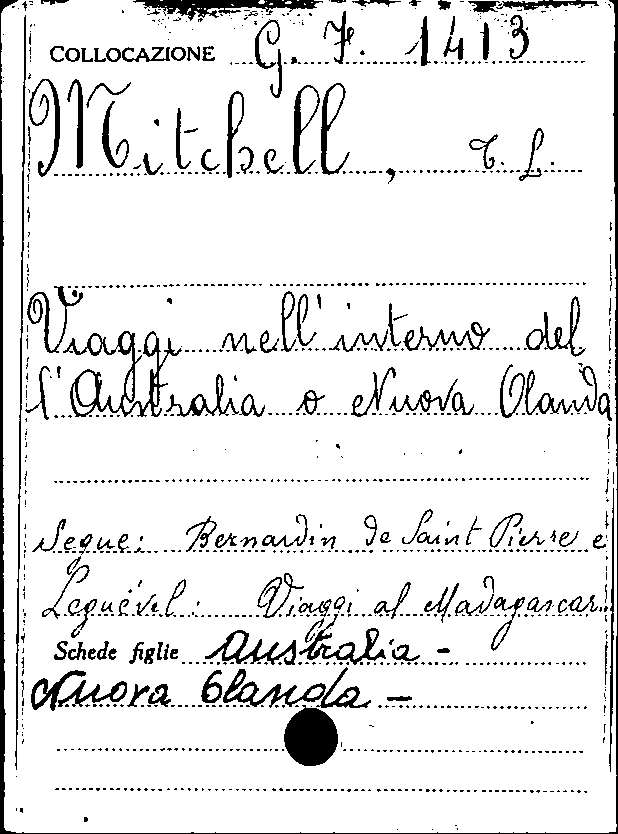 COLLOCAZIONE G. F. 1413
Mitchell, T. L.
Viaggi nell'interno del
l'Australia o Nuova Olanda
Segue: Bernardin de Saint Pierre e
Leguével: Viaggi al Madagascar..
Schede figlie Australia -
Nuova Olanda -